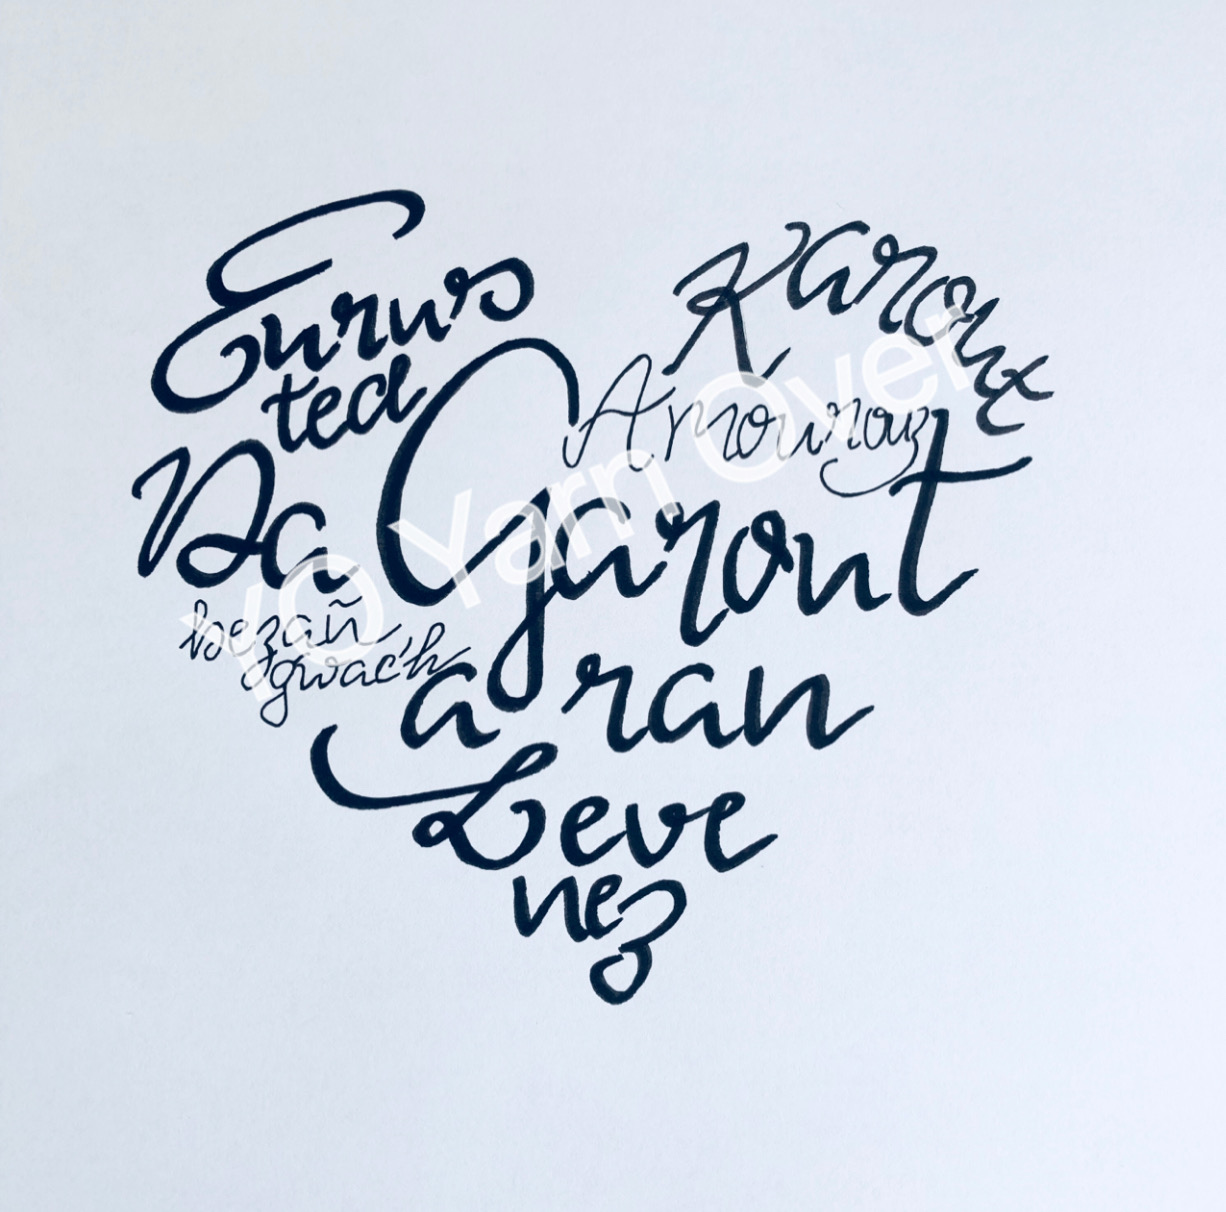 Eurus
ted
Karout
Amourouz
Da Garout
bezañ
gwac'h
a ran
Leve
nez
YO Yarn Over